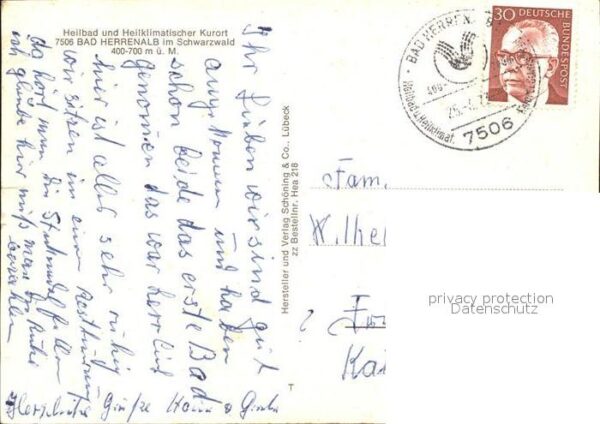 Heilbad und Heilklimatischer Kurort
7506 BAD HERRENALB im Schwarzwald
400-700 m ü. M.
Ihr Lieben wir sind gut
angekommen und haben
schon beide das erste Bad
genommen das war herrlich
hier ist alles sehr ruhig
wir sitzen in einem Restaurant
da hört man die Stecknadel fallen
ich glaube hier muß man die Ruhe
bezahlen
Herzliche Grüße
Hersteller und Verlag Schöning & Co., Lübeck
zz Bestellnr. Hea 218
T
BAD HERRENALB
Heilbad u. Heilklimat.
7506
30 DEUTSCHE BUNDESPOST
Fam.
Wilhe
privacy protection
Datenschutz